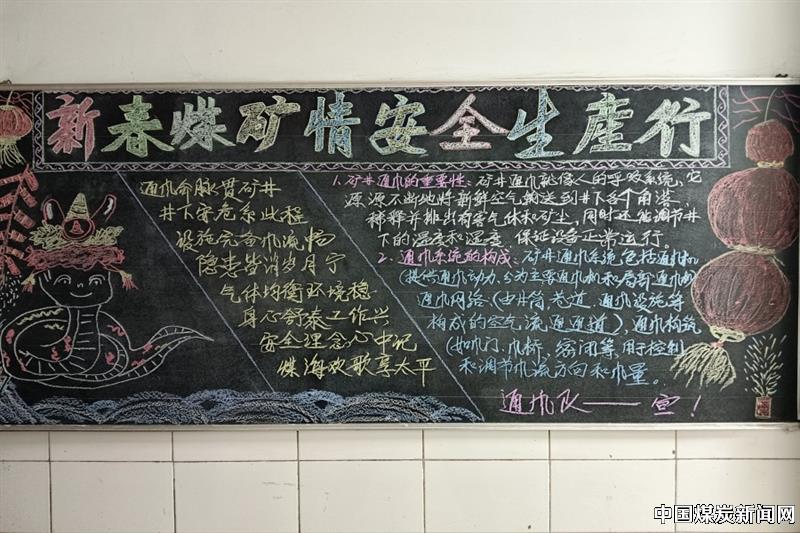 新春煤矿情安全生産行
通风命脉贯矿井
井下安危系此程
设施完备风流畅
隐患皆消岁月宁
气体均衡环境稳
身心舒泰工作兴
安全理念心中记
煤海欢歌享太平
1、矿井通风的重要性：矿井通风就像人的呼吸系统，它
源源不断地将新鲜空气输送到井下各个角落，
稀释并排出有害气体和矿尘，同时还能调节井
下的温度和湿度，保证设备正常运行。
2、通风系统的构成：矿井通风系统包括通风机
(提供通风动力，分为主要通风机和局部通风机
通风网络、(由井筒、巷道、通风设施等
构成的空气流通通道)，通风构筑
(如风门、风桥、密闭等，用于控制
和调节风流方向和风量。
通风队——宣！
中国煤炭新闻网
www.cwestc.com